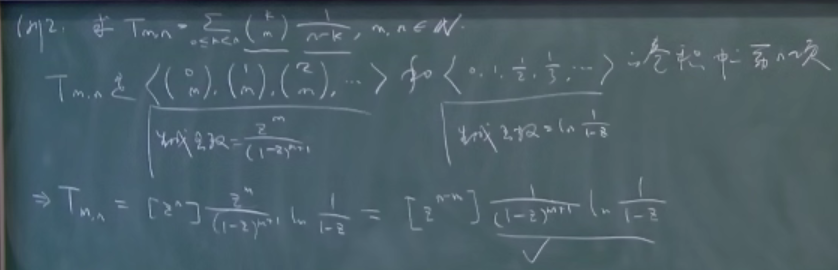 例2. 求 T_{m,n} = \sum_{0≤k<n} \binom{k}{m} \frac{1}{n-k}, m, n ∈ N.
T_{m,n} 是 ⟨\binom{0}{m}, \binom{1}{m}, \binom{2}{m}, ...⟩ 和 ⟨0, 1, \frac{1}{2}, \frac{1}{3}, ...⟩ 的卷积中第n项
生成函数 = \frac{z^m}{(1-z)^{m+1}} 生成函数 = ln \frac{1}{1-z}
⇒ T_{m,n} = [z^n] \frac{z^m}{(1-z)^{m+1}} ln \frac{1}{1-z} = [z^{n-m}] \frac{1}{(1-z)^{m+1}} ln \frac{1}{1-z}
✓